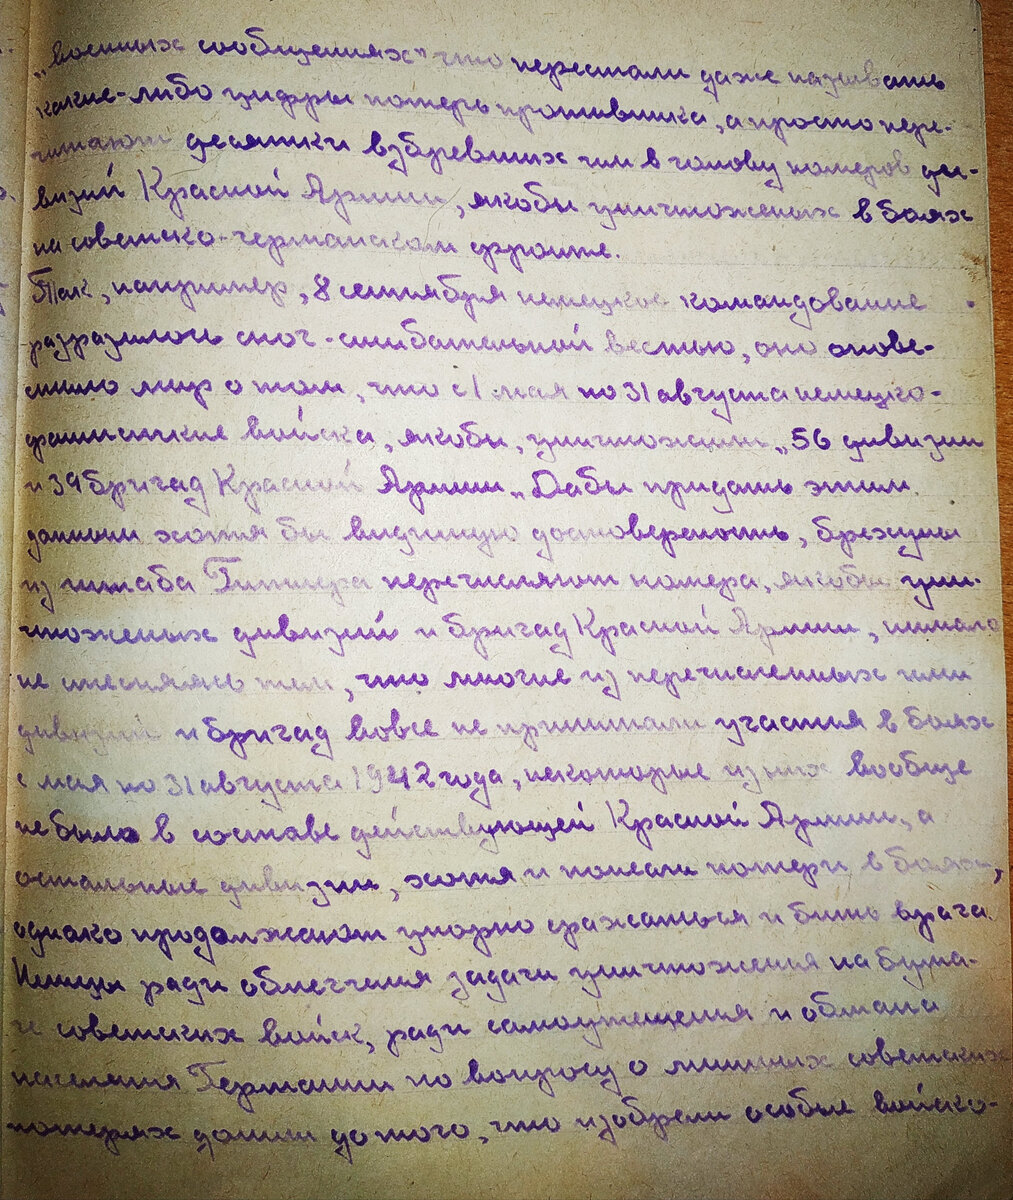 „военных сообщениях" что перестали даже называть
какие-либо цифры потерь противника, а просто пере-
читают десятки взбревших им в голову номеров ди-
визий Красной Армии, якобы уничтоженых в боях
на советско-германском фронте.
Так, например, 8 сентября немецкое командование
разразилось сног-сшибательной вестью, оно опове-
стило мир о том, что с 1 мая по 31 августа немецко-
фашисткие войска, якобы, уничтожили „56 дивизии
и 39 бригад Красной Армии„ Дабы придать этим
данным хотя бы видимую достоверность, брехуны
из штаба Гитлера перечисляют номера, якобы уни-
чтоженых дивизий и бригад Красной Армии, нимало
не стесняясь тем, что многие из перечисленных ими
дивизий и бригад вовсе не принимали участия в боях
с мая по 31 августа 1942 года, некоторые из них вообще
не было в составе действующей Красной Армии, а
остальные дивизии, хотя и понесли потери в боях,
однако продолжают упорно сражаться и бить врага.
Немцы ради облегчения задачи уничтожения на бума-
ге советских войск, ради самоутешения и обмана
населения Германии по вопросу о мнимых советских
потерях дошли до того, что изобрели особые войско-